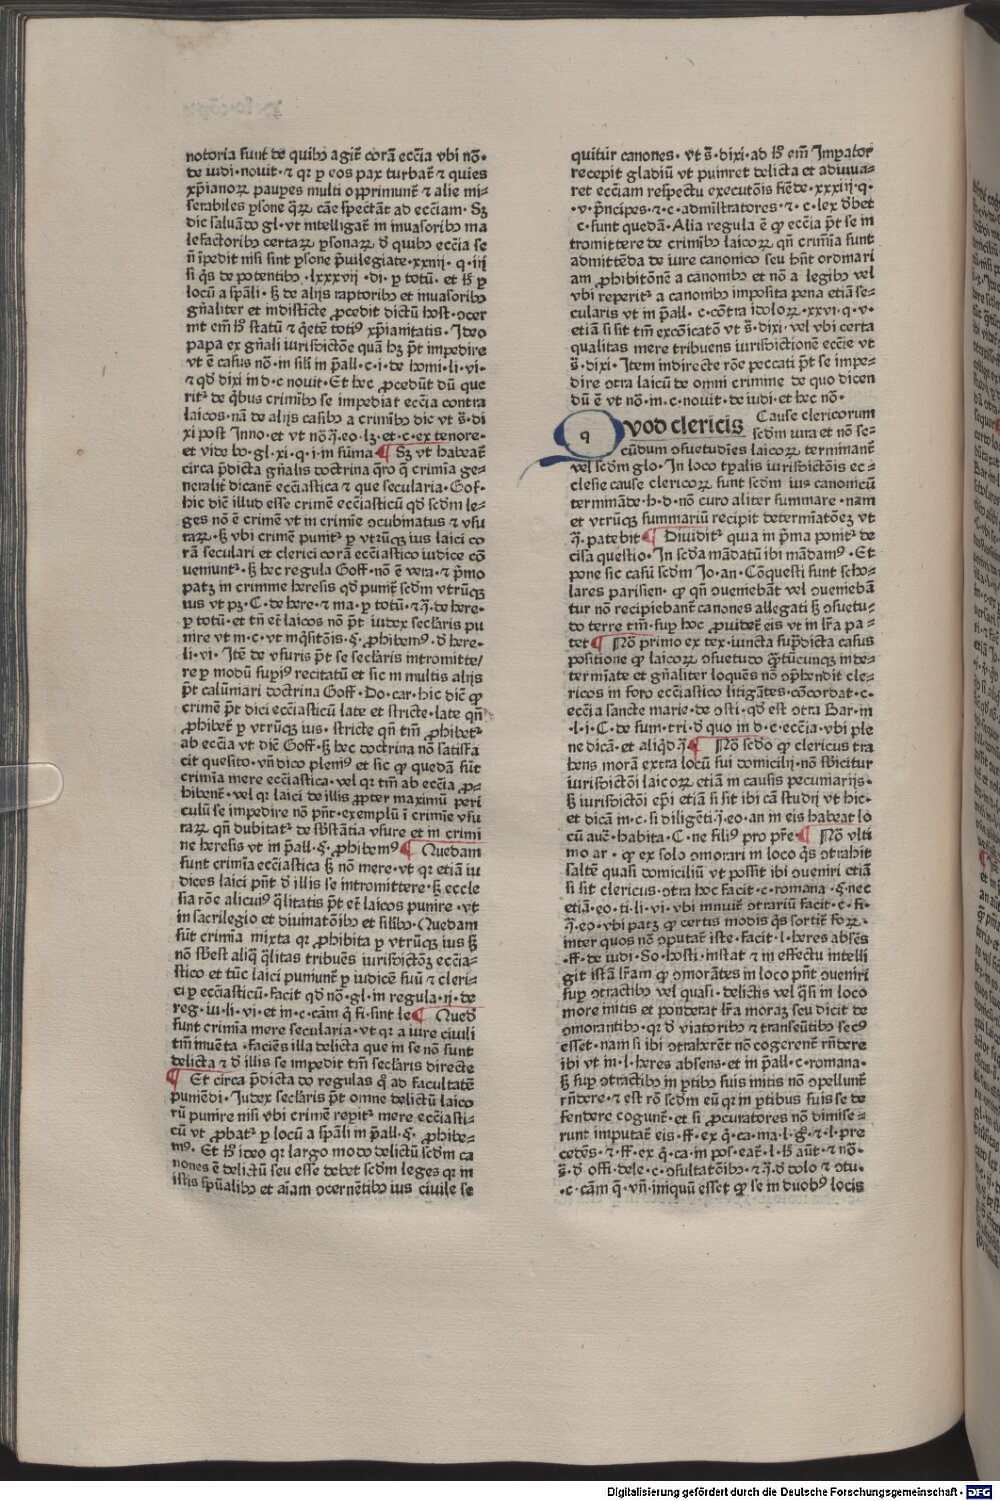 notoria sunt de quibꝯ agit̄ corā eccīa vbi nō·
de iudi·nouit·⁊ qꝛ ꝑ eos pax turbat̄ ⁊ quies
xp̄ianoꝝ paupes multi opprimunt̄ ⁊ alie mi⸗
serabiles ꝑsone q̄ꝝ cāe spectāt ad ecc̄iam· Sꝫ
dic saluādo gl·vt intelligat̄ in inuasoribꝯ ma
lefactoribꝯ certaꝝ ꝑsonaꝝ d̄ quibꝯ ecc̄ia se
nō īpedit nisi sint ꝑsone p̄uilegiate·xxiiij·q·iij
si q̄s de potentibꝯ·lxxxvij·di·ꝑ totū·et hꝰ ꝑ
locū a sp̄ali·sꝫ de alijs raptoribꝯ et inuasoribꝯ
gn̄aliter et indisticte ꝓcedit dictū host·ꝯcer
nit em̄ hꝰ statū ⁊ q̄etē totiꝰ xp̄ianitatis·Ideo
papa ex gn̄ali iurisdictōe quā hꝫ p̄t impedire
vt ē casus nō·in sili in p̄all·c·i·de homi·li·vi·
⁊ qd̄ dixi in d·c·nouit·Et hec ꝓcedūt dū que
ritᷣ de q̄bus crimībꝯ se impediat ecc̄ia contra
laicos·nā de alijs casibꝯ a crimībꝯ dic vt s̄·di
xi post Inno·et vt nō·j̄·eo·lꝫ·et·c·ex tenore·
et vide bo·gl·xi·q·i·in suma ¶ Sꝫ vt habeat̄
circa p̄dicta gn̄alis doctrina q̄ro q̄ crimīa ge⸗
neralit̄ dicant̄ ecc̄iastica ⁊ que secularia·Gof·
hic dic̄ illud esse crimē ecc̄iasticū qd̄ scdm le⸗
ges nō ē crimē vt in crimīe ꝯcubinatus ⁊ vsu
raꝝ·sꝫ vbi crimē punitᷣ ꝑ vtrūqꝫ ius laici co
rā seculari et clerici corā ecc̄iastico iudice cō
ueniunt̄·sꝫ hec regula Goff·nō ē vera·⁊ p̄mo
patꝫ in crimine heresis qd̄ punit̄ scdm vtrūqꝫ
ius vt pꝫ·C·de here·⁊ ma·ꝑ totū·⁊ j̄·de here·
ꝑ totū·et tn̄ et̄ laicos nō p̄t iudex seclaris pu
nire vt in·c·vt inq̄sitōis·§·ꝓhibemꝰ·d̄ here·
li·vi·Itē de vsuris p̄t se seclaris intromitte/
re ꝑ modū supiꝰ recitatū et sic in multis alijs
p̄t calūniari doctrina Goff·Do·car·hic dic̄ ꝙ
crimē p̄t dici ecc̄iasticū late et stricte·late qn̄
ꝓhibet̄ ꝑ vtrūqꝫ ius·stricte qn̄ tm̄ ꝓhibetᷣ
ab ecc̄ia vt dic̄ Goff·sꝫ hec doctrina nō satisfa
cit quesito·vn̄ dico pleniꝰ et sic ꝙ quedā sūt
crimīa mere ecc̄iastica·vel qꝛ tm̄ ab ecc̄ia ꝓ⸗
hibent̄·vel qꝛ laici de illis ꝓpter maximū peri
culū se impedire nō pn̄t·exemplū ī crimīe vsu
raꝝ qn̄ dubitatᷣ de sb̄stātia vsure et in crimi
ne heresis vt in p̄all·§·ꝓhibemꝰ ¶ Quedam
sunt crimīa ecc̄iastica sꝫ nō mere·vt qꝛ etiā iu
dices laici pn̄t d̄ illis se intromittere·sꝫ eccle
sia rōe alicuiꝰ q̄litatis p̄t et̄ laicos punire·vt
in sacrilegio et diuinatōibꝯ et silibꝯ·Quedam
sūt crimīa mixta qꝛ ꝓhibita ꝑ vtrūqꝫ ius sꝫ
nō sb̄est aliq̄ q̄litas tribuēs iurisdictōꝫ ecc̄ia⸗
stico et tūc laici puniunt̄ ꝑ iudicē suū ⁊ cleri⸗
ci ꝑ ecc̄iasticū·facit qd̄ nō·gl·in regula·ij·de
reg·iu·li·vi·et in·c·cām q̄ fi·sint le ¶ Qued̄
sunt crimīa mere secularia·vt qꝛ a iure ciuili
tm̄ inuēta·faciēs illa delicta que in se nō sunt
delicta ⁊ d̄ illis se impedit tm̄ seclaris directe
¶ Et circa p̄dicta do regulas q̄ ad facultatē
puniēdi·Iudex seclaris p̄t omne delictū laico
rū punire nisi vbi crimē repitᷣ mere ecc̄iasti⸗
cū vt ꝓbatᷣ ꝑ locū a sp̄ali in p̄all·§·ꝓhibe⸗
mꝰ·Et hꝰ ideo qꝛ largo modo delictū scdm ca
nones ē delictū seu esse debet scdm leges qꝛ in
istis sp̄ualibꝯ et aīam ꝯcernētibꝯ ius ciuile se
quitur canones·vt s̄·dixi·ad hꝰ em̄ Impator
recepit gladiū vt puniret delicta et adiuua⸗
ret ecc̄iam respectu executōis fiēde·xxxiij·q·
·v·p̄ncipes·⁊·c·admīstratores·⁊·c·lex d̄bet
·c·sunt quedā·Alia regula ē ꝙ ecc̄ia p̄t se in
tromittere de crimībꝯ laicoꝝ qn̄ crimīa sunt
admittēda de iure canonico seu hn̄t ordinari
am ꝓhibitōnē a canonibꝯ et nō a legibꝯ vel
vbi reperitᷣ a canonibꝯ imposita pena etiā se⸗
cularis vt in p̄all·c·cōtra idoloꝝ·xxvi·q·v·
etiā si sit tm̄ excōicatōꝰ vt s̄·dixi·vel vbi certa
qualitas mere tribuens iurisdictionē ecc̄ie vt
s̄·dixi·Item indirecte rōe peccati p̄t se impe⸗
dire ꝯtra laicū de omni crimine de quo dicen
dū ē vt nō·in·c·nouit·de iudi·et hec nō·
Qvod clericis Cause clericorum
scdm iura et nō se⸗
cūdum ꝯsuetudīes laicoꝝ terminant̄
vel scdm glo·In loco tꝑalis iurisdictōis ec⸗
clesie cause clericoꝝ sunt scdm ius canonicū
termināde·h·d·nō curo aliter summare·nam
et vtrūqꝫ summariū recipit determīatōeꝫ vt
j̄·patebit ¶ Diuiditᷣ quia in p̄ma ponitᷣ de
cisa questio·In scd̄a mādatū ibi mādamꝰ·Et
pone sic casū scdm Io·an·Cōquesti sunt scho⸗
lares parisien·ꝙ qn̄ ꝯueniebāt vel ꝯueniebā
tur nō recipiebant̄ canones allegati sꝫ ꝯsuetu⸗
do terre tm̄·sup hoc ꝓuidet̄ eis vt in lr̄a pa⸗
tet ¶ Nō primo ex tex·iuncta sup̄dicta casus
positione ꝙ laicoꝝ ꝯsuetudo q̄tūcunqꝫ inde⸗
termīate et gn̄aliter loquēs nō ꝯp̄hendit cle⸗
ricos in foro ecc̄iastico litigātes·cōcordat·c·
ecc̄ia sancte marie·de ꝯsti·qd̄ est ꝯtra Bar·in
·l·i·C·de sum·tri·d̄ quo in d·c·ecc̄ia·vbi ple
ne dicā·et aliq̄d j̄· ¶ Nō scd̄o ꝙ clericus tra
hens morā extra locū sui domicilij·nō sb̄icitur
iurisdictōi laicoꝝ etiā in causis pecuniarijs·
sꝫ iurisdictōi ep̄i etiā si sit ibi cā studij vt hic·
et dicā in·c·si diligēti·j̄·eo·an in eis habeat lo
cū aut̄·habita·C·ne filiꝰ pro pr̄e ¶ Nō vlti
mo ar·ꝙ ex solo ꝯmorari in loco q̄s ꝯtrahit
saltē quasi domiciliū vt possit ibi ꝯueniri etiā
si sit clericus·ꝯtra hoc facit·c·romana·§·nec
etiā·eo·ti·li·vi·vbi innuit̄ ꝯtrariū facit·c·fi·
j̄·eo·vbi patꝫ ꝙ certis modis q̄s sortit̄ foꝝ·
inter quos nō ꝯputat̄ iste·facit·l·heres absēs·
·ff·de iudi·So·hosti·instat ⁊ in effectu intelli
git istā lr̄am ꝙ ꝯmorātes in loco pn̄t ꝯueniri
sup ꝯtractibꝯ vel quasi·delictis vel q̄si in loco
more initis et ponderat lr̄a moraꝫ seu dicit de
ꝯmorantibꝯ·qꝛ d̄ viatoribꝯ ⁊ transeūtibꝯ secꝰ
esset·nam si ibi ꝯtraherēt nō cogerent̄ rn̄dere
ibi vt in·l·heres absens·et in p̄all·c·romana·
sꝫ sup ꝯtractibꝯ in ptibꝯ suis initis nō ꝯpellunt̄
rn̄dere·⁊ est rō scdm eū qꝛ in ptibus suis se de
fendere cogunt̄·et si ꝓcuratores nō dimise⸗
runt imputat̄ eis·ff·ex q̄·ca·ma·l·q̄·⁊·l·pre
cedēs·⁊·ff·ex q̄·ca·in pos·eat̄·l·hꝰ aūt·⁊ nō·
s̄·d̄ offi·dele·c·ꝯsultatōibꝯ·⁊ j̄·d̄ dolo ⁊ ꝯtu·
·c·cām q̄·vn̄·iniquū esset ꝙ se in duobꝰ locis
Digitalisierung gefördert durch die Deutsche Forschungsgemeinschaft - DFG